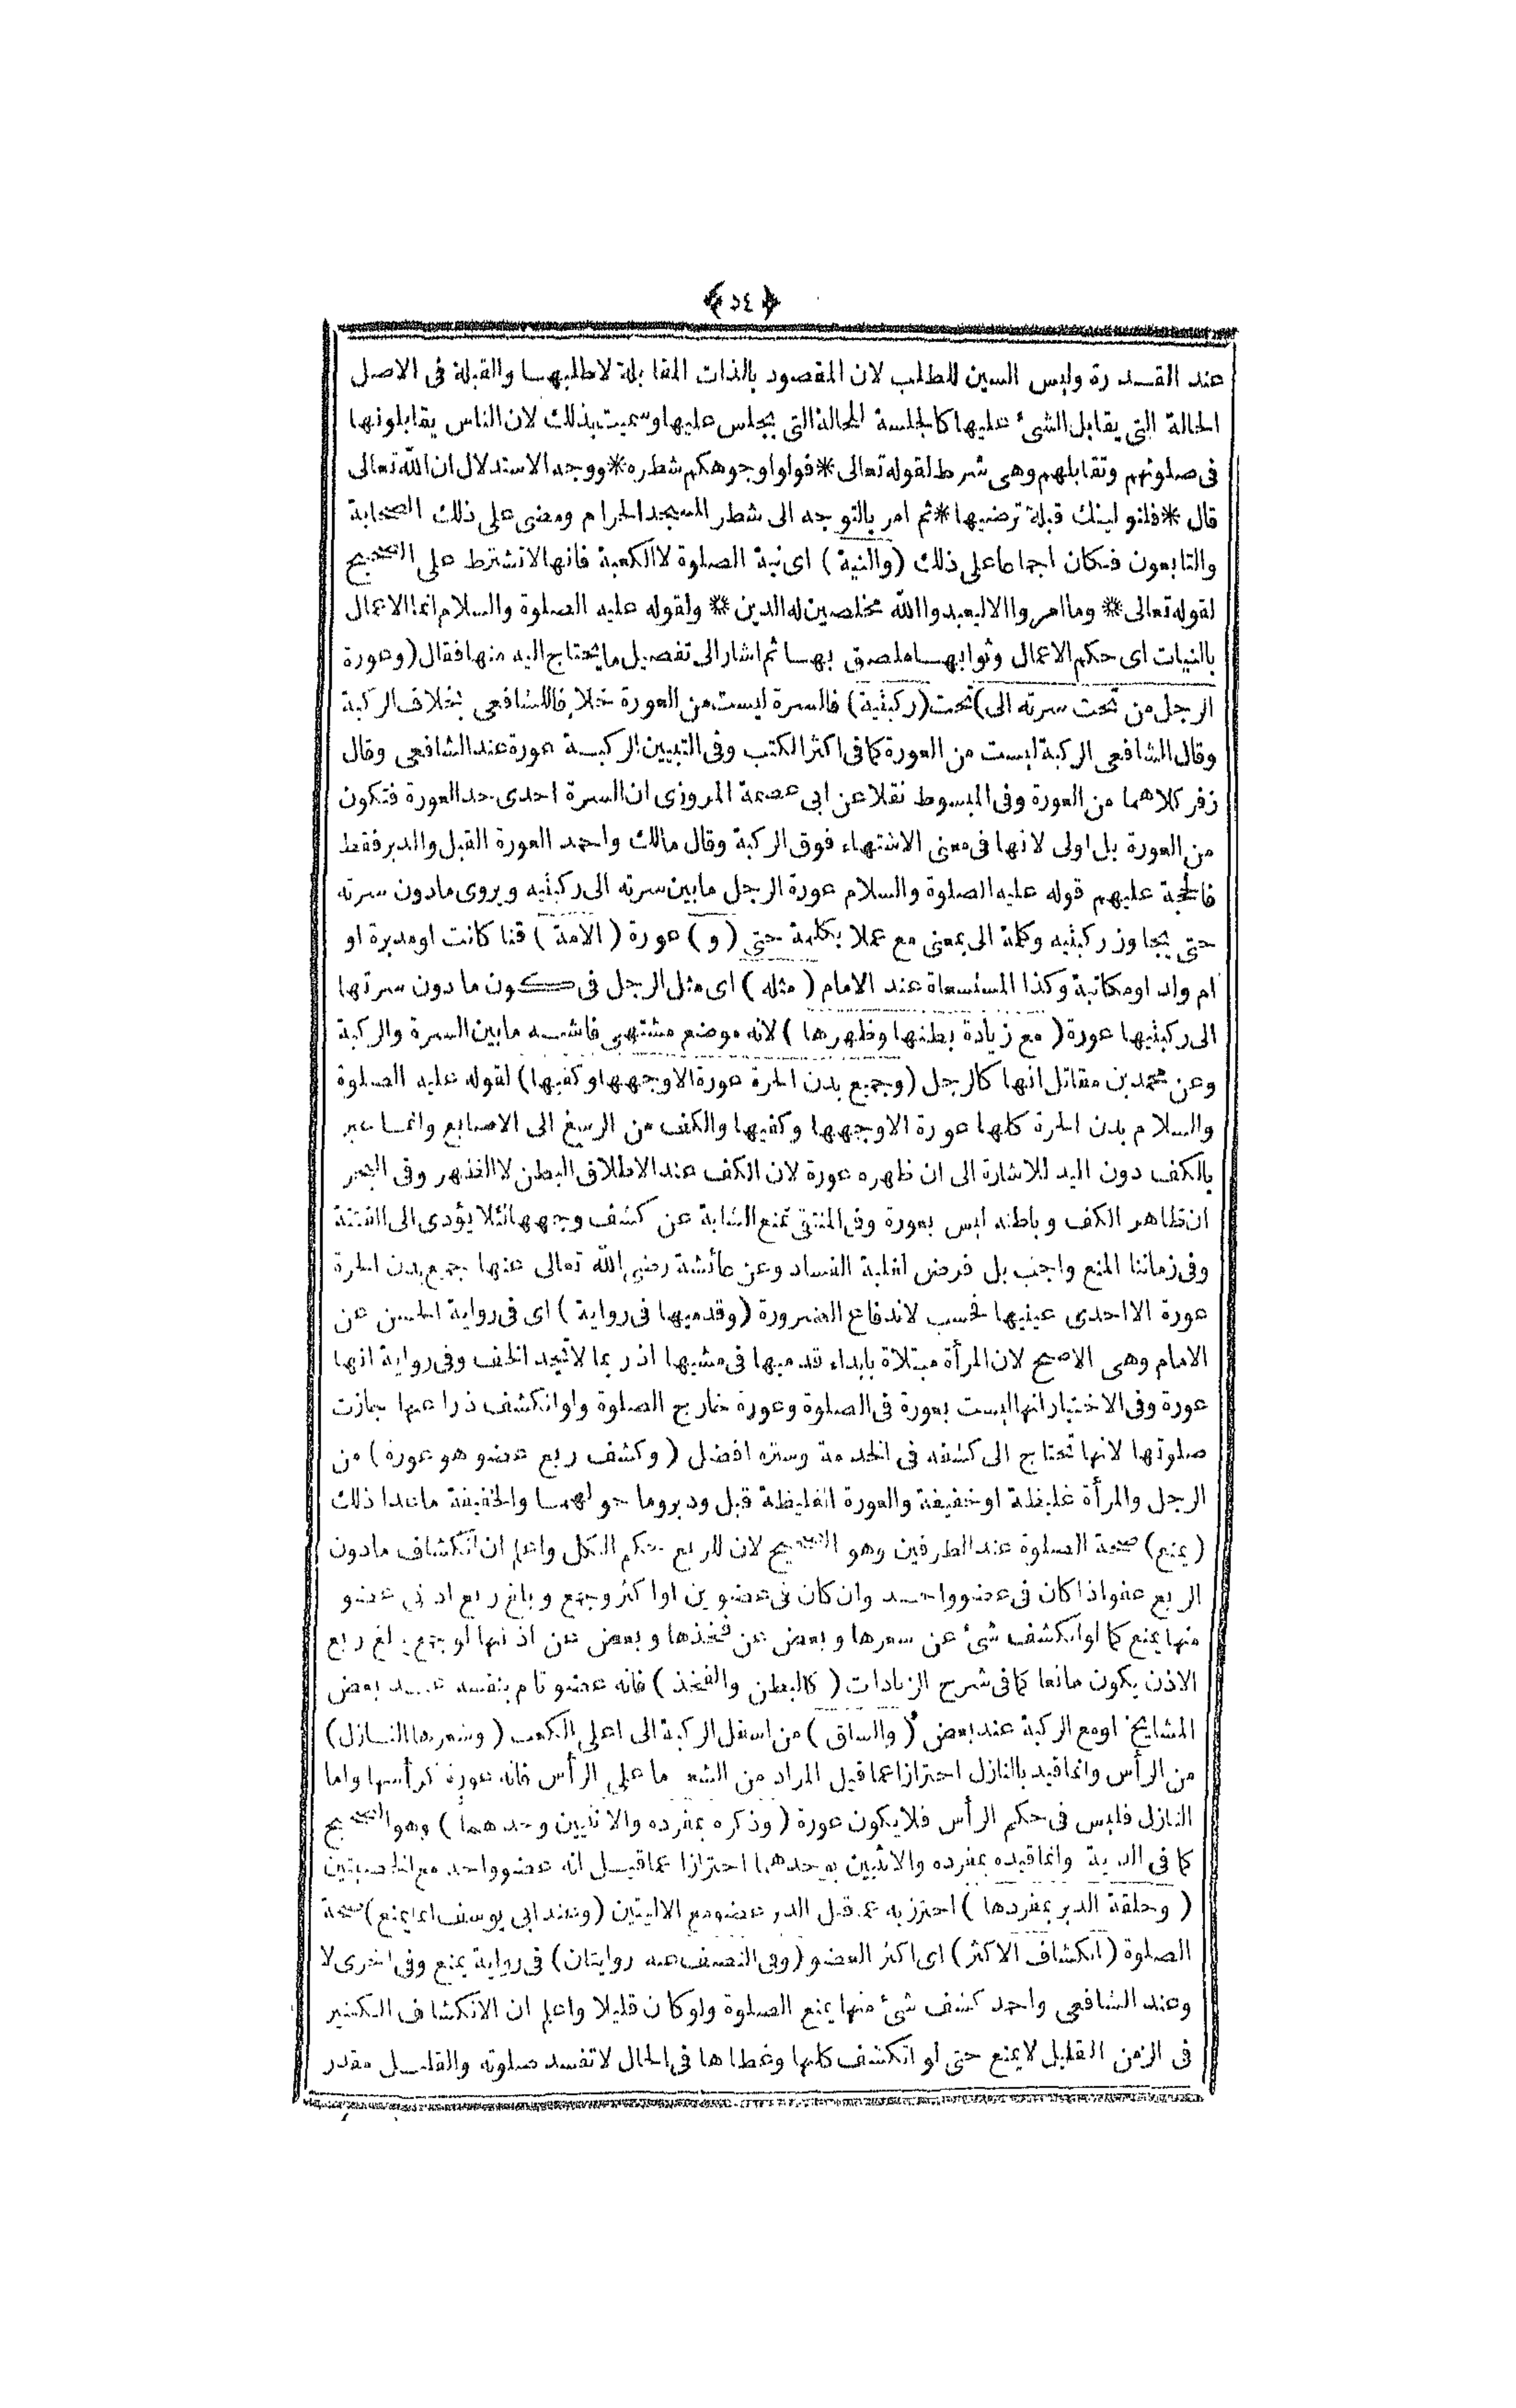 ﴿٥٤﴾
عند القدرة وليس السين للطلب لان المقصود بالذات المقابلة لاطلبها والقبلة فى الاصل
الحالة التى يقابل الشئ عليها كالجلسة للحالة التى يجلس عليها وسميت بذلك لان الناس يقابلونها
فى صلوتهم وتقابلهم وهى شرط لقوله تعالى * فولوا وجوهكم شطره * ووجه الاستدلال ان الله تعالى
قال * فلنولينك قبلة ترضيها * ثم امر بالتوجه الى شطر المسجد الحرام ومضى على ذلك الصحابة
والتابعون فكان اجماعا على ذلك (والنية) اى نية الصلوة لا الكعبة فانها لا تشترط على الصحيح
لقوله تعالى * وما امروا الا ليعبدوا الله مخلصين له الدين * ولقوله عليه الصلوة والسلام انما الاعمال
بالنيات اى حكم الاعمال وثوابها ملصق بها ثم اشار الى تفصيل ما يحتاج اليه منها فقال (وعورة
الرجل من تحت سرته الى) تحت (ركبتيه) فالسرة ليست من العورة خلافا للشافعى بخلاف الركبة
وقال الشافعى الركبة ليست من العورة كما فى اكثر الكتب وفى التبيين الركبة عورة عند الشافعى وقال
زفر كلاهما من العورة وفى المبسوط نقلا عن ابى عصمة المروزى ان السرة احدى حد العورة فتكون
من العورة بل اولى لانها فى معنى الاشتهاء فوق الركبة وقال مالك واحمد العورة القبل والدبر فقط
فالحجة عليهم قوله عليه الصلوة والسلام عورة الرجل ما بين سرته الى ركبتيه ويروى ما دون سرته
حتى يجاوز ركبتيه وكلمة الى بمعنى مع عملا بكلمة حتى (و) عورة (الامة) قنا كانت او مدبرة او
ام ولد او مكاتبة وكذا المستسعاة عند الامام (مثله) اى مثل الرجل فى كون ما دون سرتها
الى ركبتيها عورة (مع زيادة بطنها وظهرها) لانه موضع مشتهى فاشبه ما بين السرة والركبة
وعن محمد بن مقاتل انها كالرجل (وجميع بدن الحرة عورة الا وجهها وكفيها) لقوله عليه الصلوة
والسلام بدن الحرة كلها عورة الا وجهها وكفيها والكف من الرسغ الى الاصابع وانما عبر
بالكف دون اليد للاشارة الى ان ظهره عورة لان الكف عند الاطلاق البطن لا الظهر وفى البحر
ان ظاهر الكف وباطنه ليس بعورة وفى المنتقى تمنع الشابة عن كشف وجهها لئلا يؤدى الى الفتنة
وفى زماننا المنع واجب بل فرض لغلبة الفساد وعن عائشة رضى الله تعالى عنها جميع بدن الحرة
عورة الا احدى عينيها فحسب لاندفاع الضرورة (وقدميها فى رواية) اى فى رواية الحسن عن
الامام وهى الاصح لان المرأة مبتلاة بابداء قدميها فى مشيها اذ ربما لا تجد الخف وفى رواية انها
عورة وفى الاختيار انها ليست بعورة فى الصلوة وعورة خارج الصلوة ولو انكشف ذراعها جازت
صلوتها لانها تحتاج الى كشفه فى الخدمة وستره افضل (وكشف ربع عضو هو عورة) من
الرجل والمرأة غليظة او خفيفة والعورة الغليظة قبل ودبر وما حولهما والخفيفة ما عدا ذلك
(يمنع) صحة الصلوة عند الطرفين وهو الصحيح لان للربع حكم الكل واعلم ان انكشاف ما دون
الربع عفو اذا كان فى عضو واحد وان كان فى عضوين او اكثر وجمع وبلغ ربع ادنى عضو
منها يمنع كما لو انكشف شئ عن شعرها وبعض عن فخذها وبعض عن اذنها لو جمع بلغ ربع
الاذن يكون مانعا كما فى شرح الزيادات (كالبطن والفخذ) فانه عضو تام بنفسه عند بعض
المشايخ او مع الركبة عند بعض (والساق) من اسفل الركبة الى اعلى الكعب (وشعرها النازل)
من الرأس وانما قيد بالنازل احترازا عما قيل المراد من الشعر ما على الرأس فانه عورة كرأسها واما
النازل فليس فى حكم الرأس فلا يكون عورة (وذكره بمفرده والانثيين وحدهما) وهو الصحيح
كما فى الهداية وانما قيده بمفرده والانثيين بوحدهما احترازا عما قيل انه عضو واحد مع الخصيتين
(وحلقة الدبر بمفردها) احترز به عما قيل الدبر عضو مع الاليتين (وعند ابى يوسف انما يمنع) صحة
الصلوة (انكشاف الاكثر) اى اكثر العضو (وفى النصف عنه روايتان) فى رواية يمنع وفى اخرى لا
وعند الشافعى واحمد كشف شئ منها يمنع الصلوة ولو كان قليلا واعلم ان الانكشاف الكثير
فى الزمن القليل لا يمنع حتى لو انكشف كلها وغطاها فى الحال لا تفسد صلوته والقليل مقدر